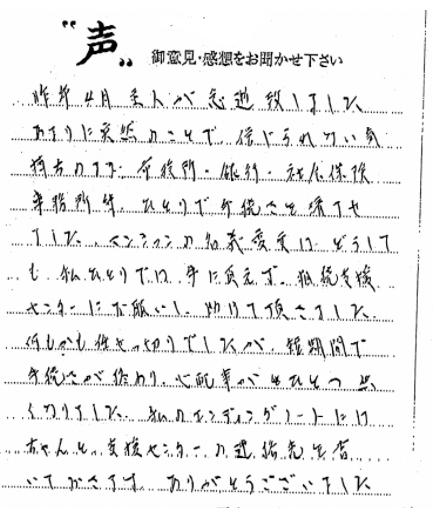 "声"
御意見・感想をお聞かせ下さい
昨年4月主人が急逝致しました
あまりに突然のことで、信じられない気
持ちのまま、市役所・銀行・社会保険
事務所等、ひとりで手続きを済ませ
ました。マンションの名義変更は、どうして
も私ひとりでは、手に負えず、相続支援
センターにお願いし、助けて頂きました。
何もかも任せっ切りでしたが、短期間で
手続きが終わり、心配事がまたひとつ無
くなりました。私のエンディングノートには
ちゃんと、支援センターの連絡先を書
いておきます。ありがとうございました